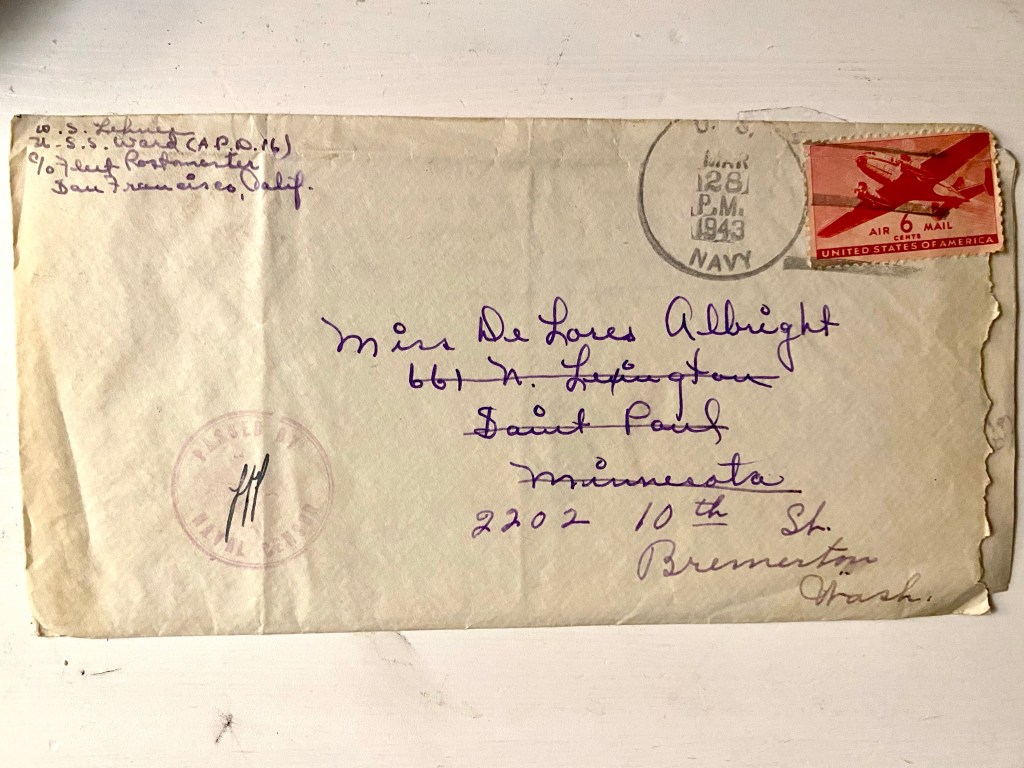 W. S. Lehner
U.S.S. Ward (A.P.D. 16)
c/o Fleet Postmaster
San Francisco, Calif.
U. S.
MAR
28
P.M.
1943
NAVY
AIR 6 MAIL
CENTS
UNITED STATES OF AMERICA
Miss De Lores Albright
661 N. Lexington
Saint Paul
Minnesota
2202 10th St.
Bremerton
Wash.
PASSED BY
NAVAL CENSOR